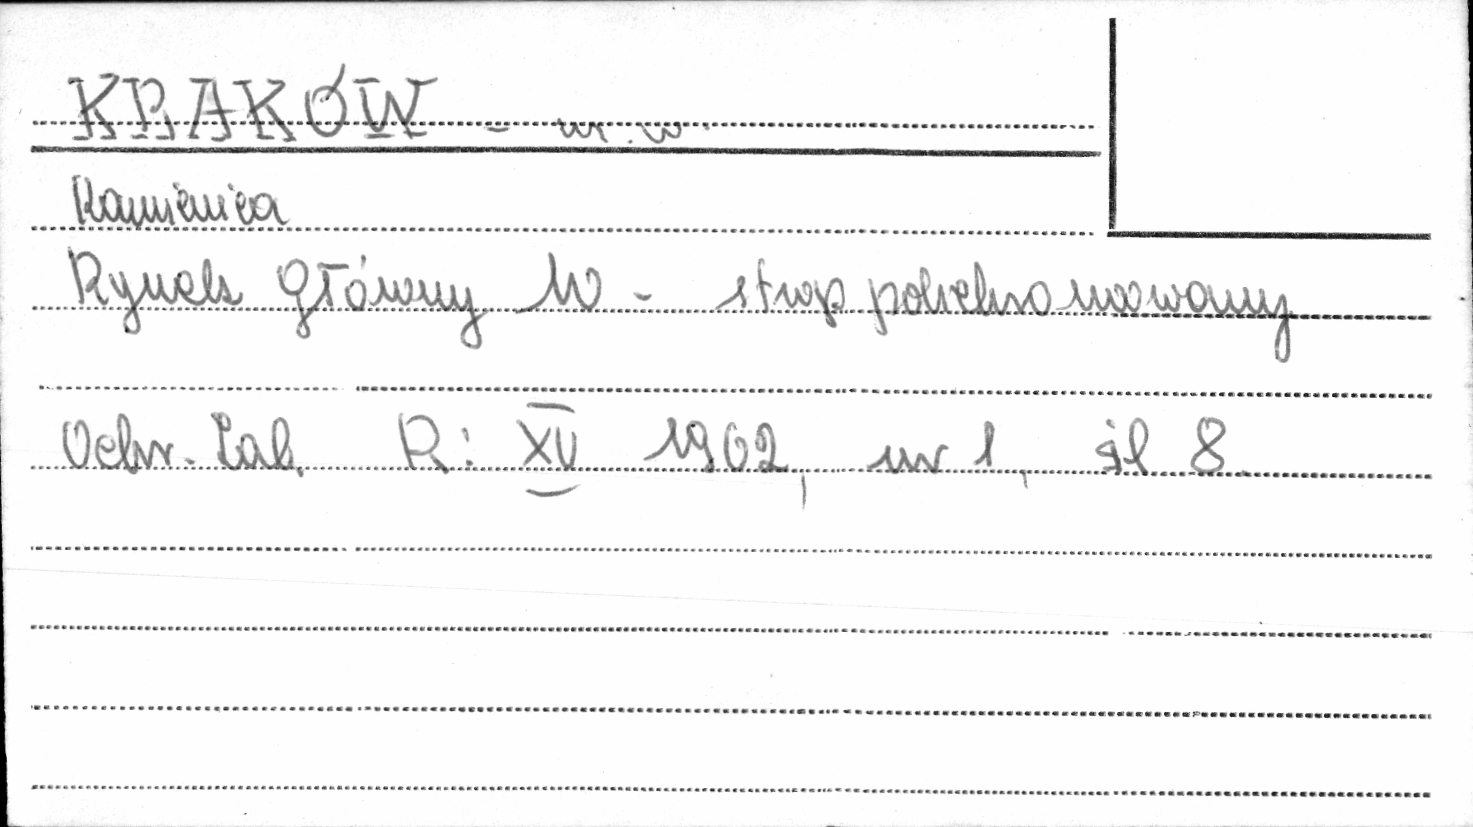 KRAKÓW - m. w.
Kamienica
Rynek Główny 10 - strop polichromowany
Ochr. Zab. R: XV 1962, nr 1, il 8.